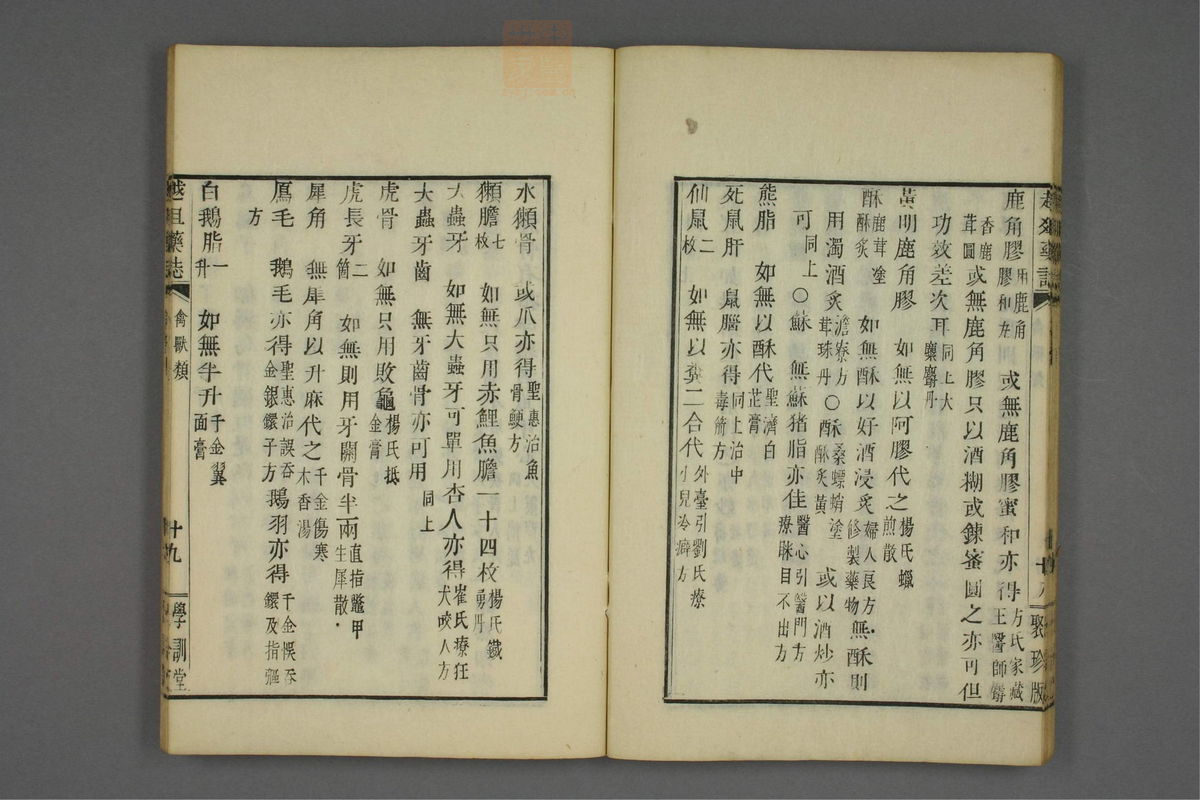 鹿角膠用鹿角膠和左 或無鹿角膠蜜和亦得方氏家藏王醫師麝
香鹿茸圓或無鹿角膠只以酒糊或鍊蜜圓之亦可但
功效差次耳同上大麋麝丹
黃明鹿角膠 如無以阿膠代之楊氏蠟煎散
酥鹿茸塗酥炙 如無酥以好酒浸炙婦人良方修製藥物無酥則
用濁酒炙澹寮方茸珠丹〇酥桑螵蛸塗酥炙黃 或以酒炒亦
可同上〇蘇 無蘇猪脂亦佳醫心引醫門方療眯目不出方
熊脂 如無以酥代聖濟白芷膏
死鼠肝 鼠腦亦得同上治中毒箭方
仙鼠二枚 如無以糞二合代外臺引劉氏療小兒冷癖方
十八
聚珍版
水獺骨 或爪亦得聖惠治魚骨鯁方
獺膽七枚 如無只用赤鯉魚膽一十四枚楊氏鐵勇丹
大蟲牙 如無大蟲牙可單用杏人亦得崔氏療狂犬咬人方
大蟲牙齒 無牙齒骨亦可用同上
虎骨 如無只用敗龜楊氏抵金膏
虎長牙二箇 如無則用牙關骨半兩直指鼈甲生犀散
犀角 無犀角以升麻代之千金傷寒木香湯
鴈毛 鵝毛亦得聖惠治誤吞金銀鐶子方鵝羽亦得千金悞吞鐶及指彄
方
白鵝脂一升 如無半升千金翼面膏
禽獸類
十九
學訓堂